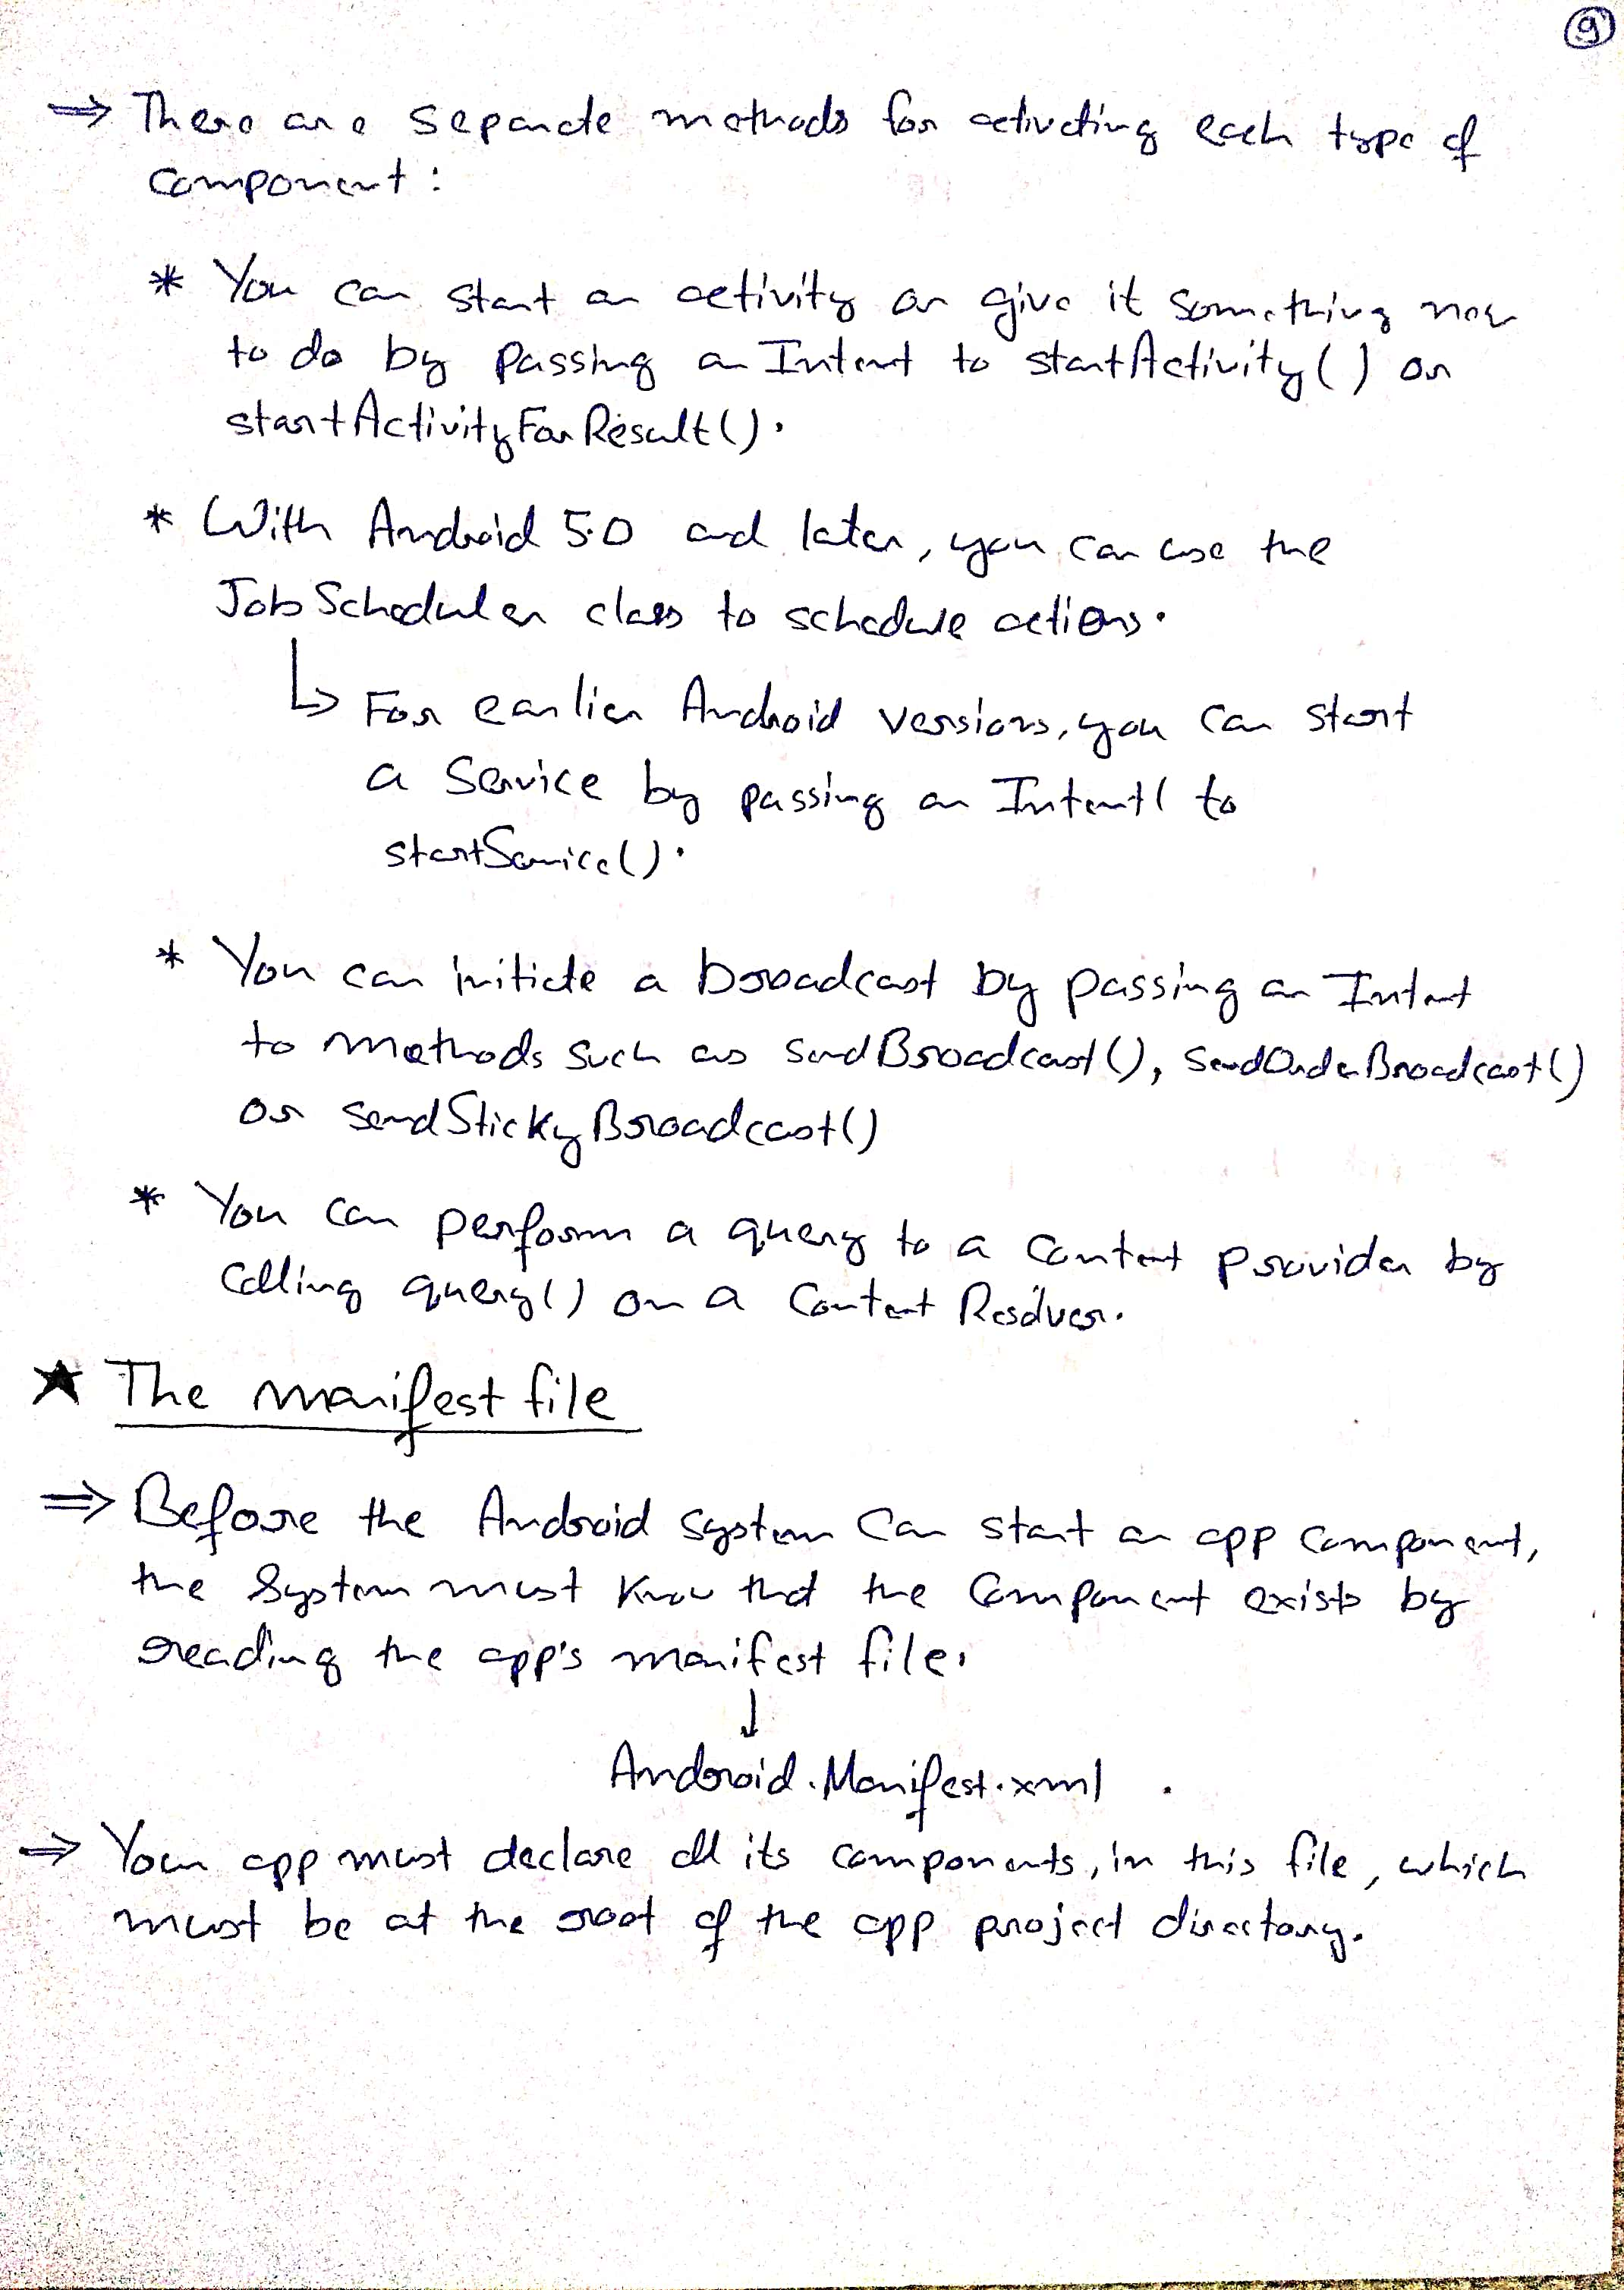 9
⇒ There are separate methods for activating each type of
component:
* You can start an activity or give it something new
to do by passing an Intent to startActivity() or
startActivityForResult().
* With Android 5.0 and later, you can use the
JobScheduler class to schedule actions.
↳ For earlier Android versions, you can start
a service by passing an Intent( to
startService().
* You can initiate a broadcast by passing an Intent
to methods such as sendBroadcast(), sendOrderBroadcast()
or sendStickyBroadcast()
* You can perform a query to a content provider by
calling query() on a Content Resolver.
★ The manifest file
⇒ Before the Android system can start an app component,
the system must know that the component exists by
reading the app's manifest file.
↓
Android.Manifest.xml
⇒ Your app must declare all its components, in this file, which
must be at the root of the app project directory.